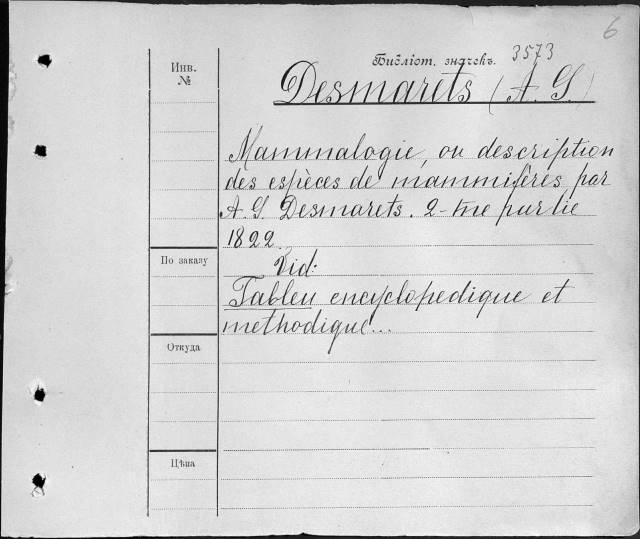 6
Библіот. значекъ. 3573
Инв.
№
Desmarets (A. G.)
Mammalogie, ou description
des espèces de mammifères par
A. G. Desmarets. 2-me partie
1822.
По заказу
Vid:
Tableu encyclopedique et
methodique...
Откуда
Цѣна